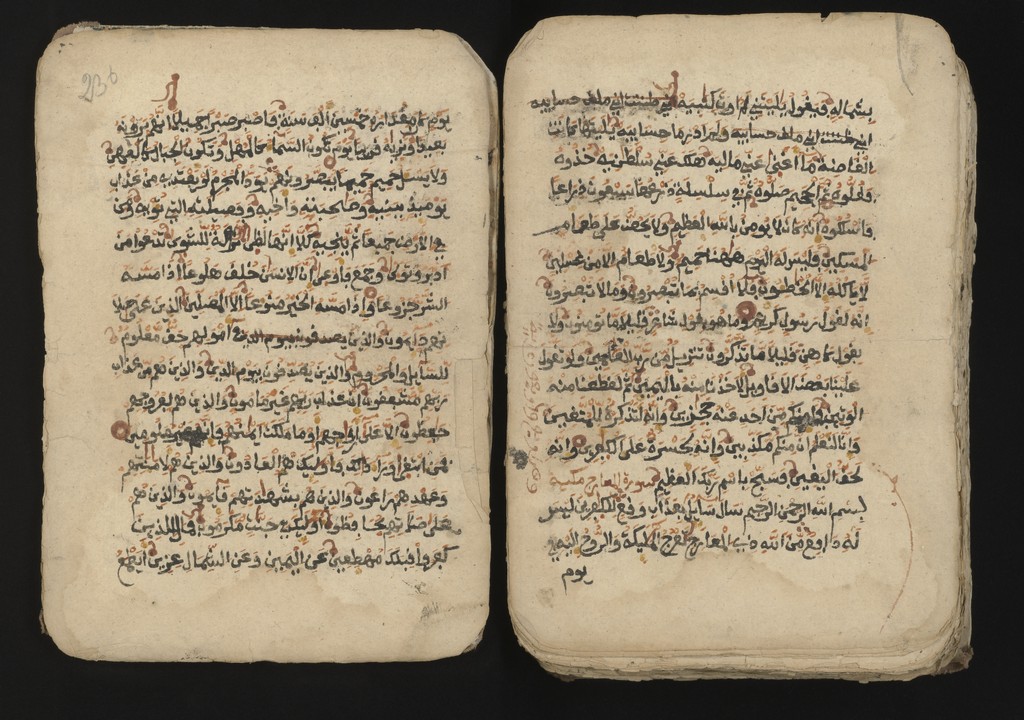 بشماله فيقول يليتني لم اوت كتبيه حسابيه
اني ظننت اني ملق حسابيه ولم ادر ما حسابيه يليتها كانت
القاضية ما اغنى عني ماليه هلك عني سلطنيه خذوه
فغلوه ثم الجحيم صلوه ثم في سلسلة ذرعها سبعون ذراعا
فاسلكوه انه كان لا يومن بالله العظيم ولا يحض على طعام
المسكين فليس له اليوم ههنا حميم ولا طعام الا من غسلين
لا ياكله الا الخطون فلا اقسم بما تبصرون وما لا تبصرون
انه لقول رسول كريم وما هو بقول شاعر قليلا ما تومنون ولا
بقول كاهن قليلا ما تذكرون تنزيل من رب العلمين ولو تقول
علينا بعض الاقاويل لاخذنا منه باليمين ثم لقطعنا منه
الوتين فما منكم من احد عنه حجزين وانه لتذكرة للمتقين
وانا لنعلم ان منكم مكذبين وانه لحسرة على الكفرين وانه
لحق اليقين فسبح باسم ربك العظيم سورة المعارج مكية
بسم الله الرحمن الرحيم سال سايل بعذاب وقع للكفرين ليس
له دافع من الله ذي المعارج تعرج المليكة والروح اليه في
يوم
23b
يوم كان مقداره خمسين الف سنة فاصبر صبرا جميلا انهم يرونه
بعيدا ونريه قريبا يوم تكون السماء كالمهل وتكون الجبال كالعهن
ولا يسل حميم حميما يبصرونهم يود المجرم لو يفتدي من عذاب
يوميذ ببنيه وصاحبته واخيه وفصيلته التي تويه ومن
في الارض جميعا ثم ينجيه كلا انها لظى نزاعة للشوى تدعوا من
ادبر وتولى وجمع فاوعى ان الانسن خلق هلوعا اذا مسه
الشر جزوعا واذا مسه الخير منوعا الا المصلين الذين على صلا
تهم دايمون والذين في اموالهم حق معلوم
للسايل والمحروم والذين يصدقون بيوم الدين والذين هم من عذاب
ربهم مشفقون ان عذاب ربهم غير مامون والذين هم لفروجهم
حفظون الا على ازواجهم او ما ملكت ايمنهم فانهم غير ملومين
فمن ابتغى ورا ذلك فاوليك هم العادون والذين هم لامنتهم
وعهدهم راعون والذين هم بشهدتهم قايمون والذين هم
على صلاتهم يحافظون اوليك في جنت مكرمون فمال الذين
كفروا قبلك مهطعين عن اليمين وعن الشمال عزين ايطمع